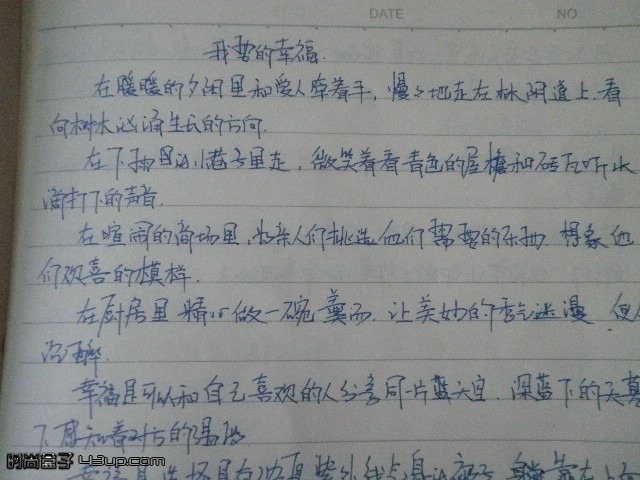 DATE NO.
我要的幸福.
在暖暖的夕阳里和爱人牵着手,慢慢地走在林阴道上.看
向树木汹涌生长的方向.
在下雨的小巷子里走,微笑着看青色的屋檐和砖瓦听水
滴打下的声音.
在喧闹的商场里,为亲人们挑选他们需要的东西.想象他
们欢喜的模样.
在厨房里精心做一碗羹汤.让美妙的香气迷漫,
沉醉.
幸福是可以和自己喜欢的人分享同一片蓝天空.深蓝下的天幕
下感知着对方的
时尚盒子 43up.com
幸福是选择